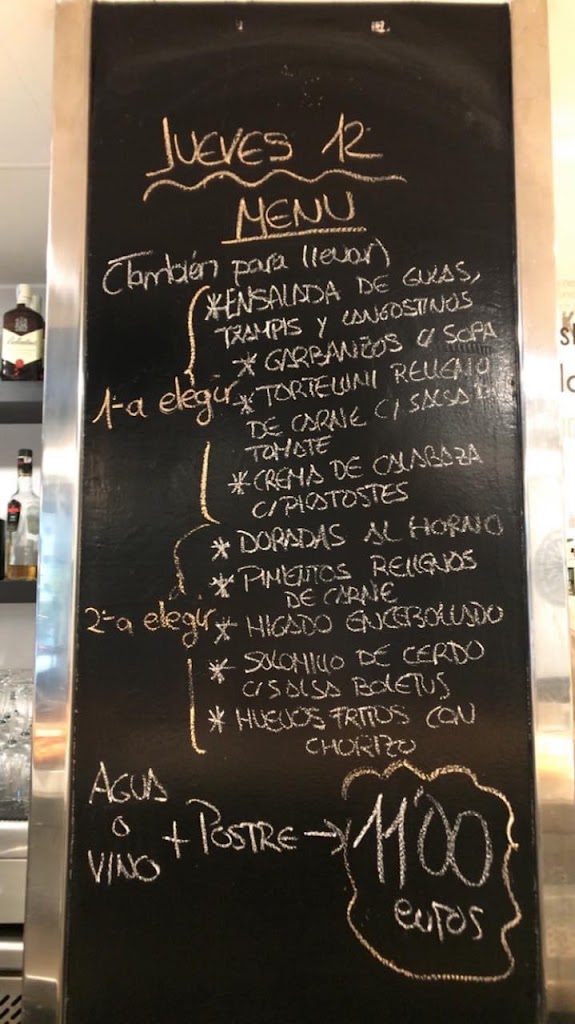 JUEVES 12
MENU
(También para llevar)
*ENSALADA DE GULAS,
TRAMPIS Y LANGOSTINOS
* GARBANZOS C/ SOPA
1-a elegir
* TORTELLINI RELLENO
DE CARNE C/ SALSA
TOMATE
* CREMA DE CALABAZA
C/PICATOSTES
* DORADAS AL HORNO
* PIMIENTOS RELLENOS
DE CARNE
2-a elegir
* HIGADO ENCEBOLLADO
* SOLOMILLO DE CERDO
C/SALSA BOLETUS
* HUEVOS FRITOS CON
CHORIZO
AGUA
O
VINO
+ POSTRE → 11'00
euros